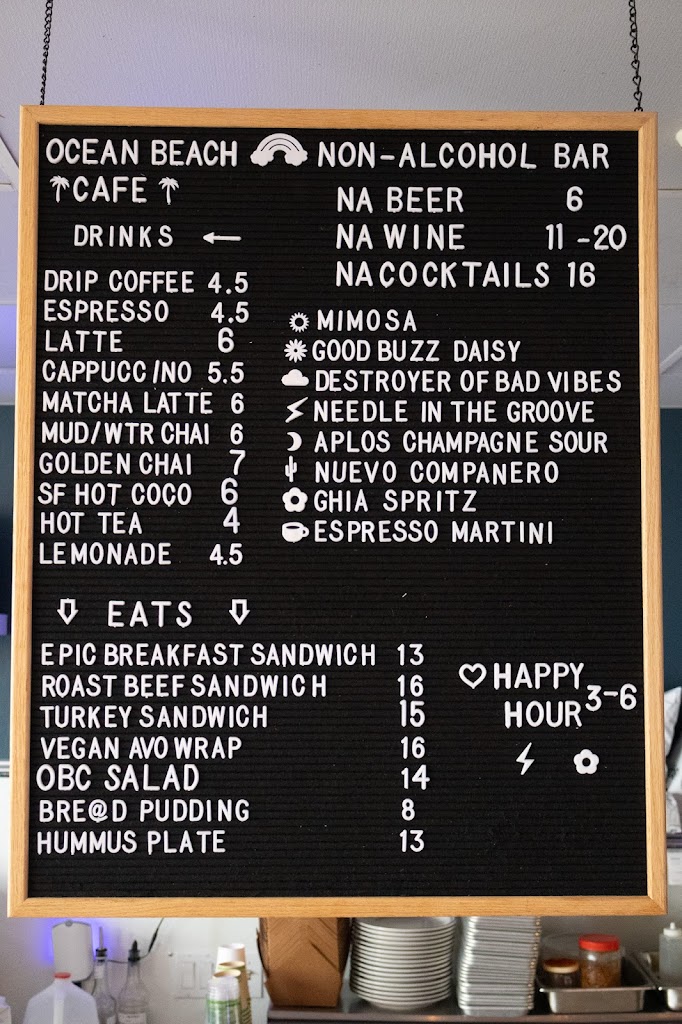 OCEAN BEACH
CAFE
DRINKS
DRIP COFFEE 4.5
ESPRESSO 4.5
LATTE 6
CAPPUCC/NO 5.5
MATCHA LATTE 6
MUD/WTR CHAI 6
GOLDEN CHAI 7
SF HOT COCO 6
HOT TEA 4
LEMONADE 4.5
NON-ALCOHOL BAR
NA BEER 6
NA WINE 11-20
NA COCKTAILS 16
MIMOSA
GOOD BUZZ DAISY
DESTROYER OF BAD VIBES
NEEDLE IN THE GROOVE
APLOS CHAMPAGNE SOUR
NUEVO COMPANERO
GHIA SPRITZ
ESPRESSO MARTINI
EATS
EPIC BREAKFAST SANDWICH 13
ROAST BEEF SANDWICH 16
TURKEY SANDWICH 15
VEGAN AVO WRAP 16
OBC SALAD 14
BRE@D PUDDING 8
HUMMUS PLATE 13
HAPPY
HOUR 3-6